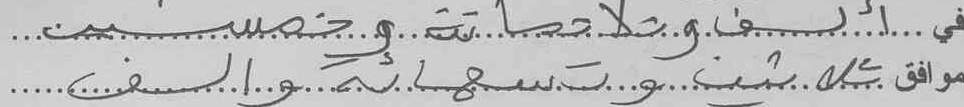 في ألف وثلاثمائة وخمسين
موافق ثلاثين وتسعمائة وألف